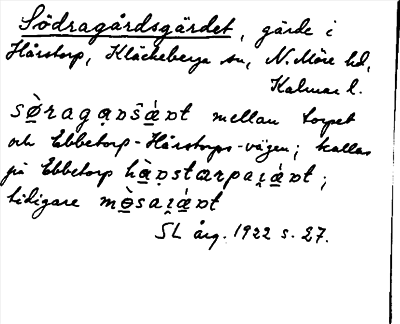 Södragårdsgärdet, gärde i
Hårstorp, Kläckeberga sn, N. Möre hd,
Kalmar l.
mellan torpet
och Ebbetorp-Hårstorps-vägen; kallas
på Ebbetorp
tidigare
SL årg. 1922 s. 27.